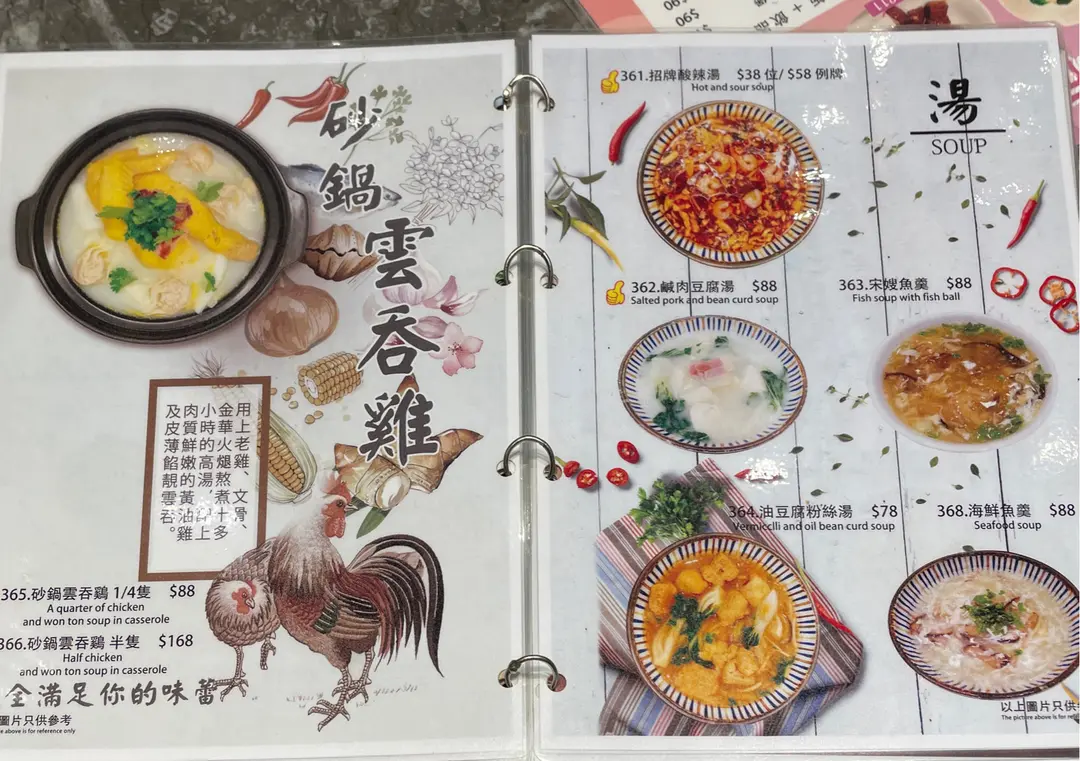 砂鍋雲吞雞
用上老雞、文骨、
金華火腿熬煮十多
小時的高湯,配上
肉質鮮嫩的黃油雞
及皮薄餡靚雲吞。
365.砂鍋雲吞鷄 1/4隻 $88
A quarter of chicken
and won ton soup in casserole
366.砂鍋雲吞鷄 半隻 $168
Half chicken
and won ton soup in casserole
全滿足你的味蕾
圖片只供參考
above is for reference only
湯
SOUP
361.招牌酸辣湯 $38 位/ $58 例牌
Hot and sour soup
362.鹹肉豆腐湯 $88
Salted pork and bean curd soup
363.宋嫂魚羹 $88
Fish soup with fish ball
364.油豆腐粉絲湯 $78
Vermiclli and oil bean curd soup
368.海鮮魚羹 $88
Seafood soup
以上圖片只供
The picture above is for
$90